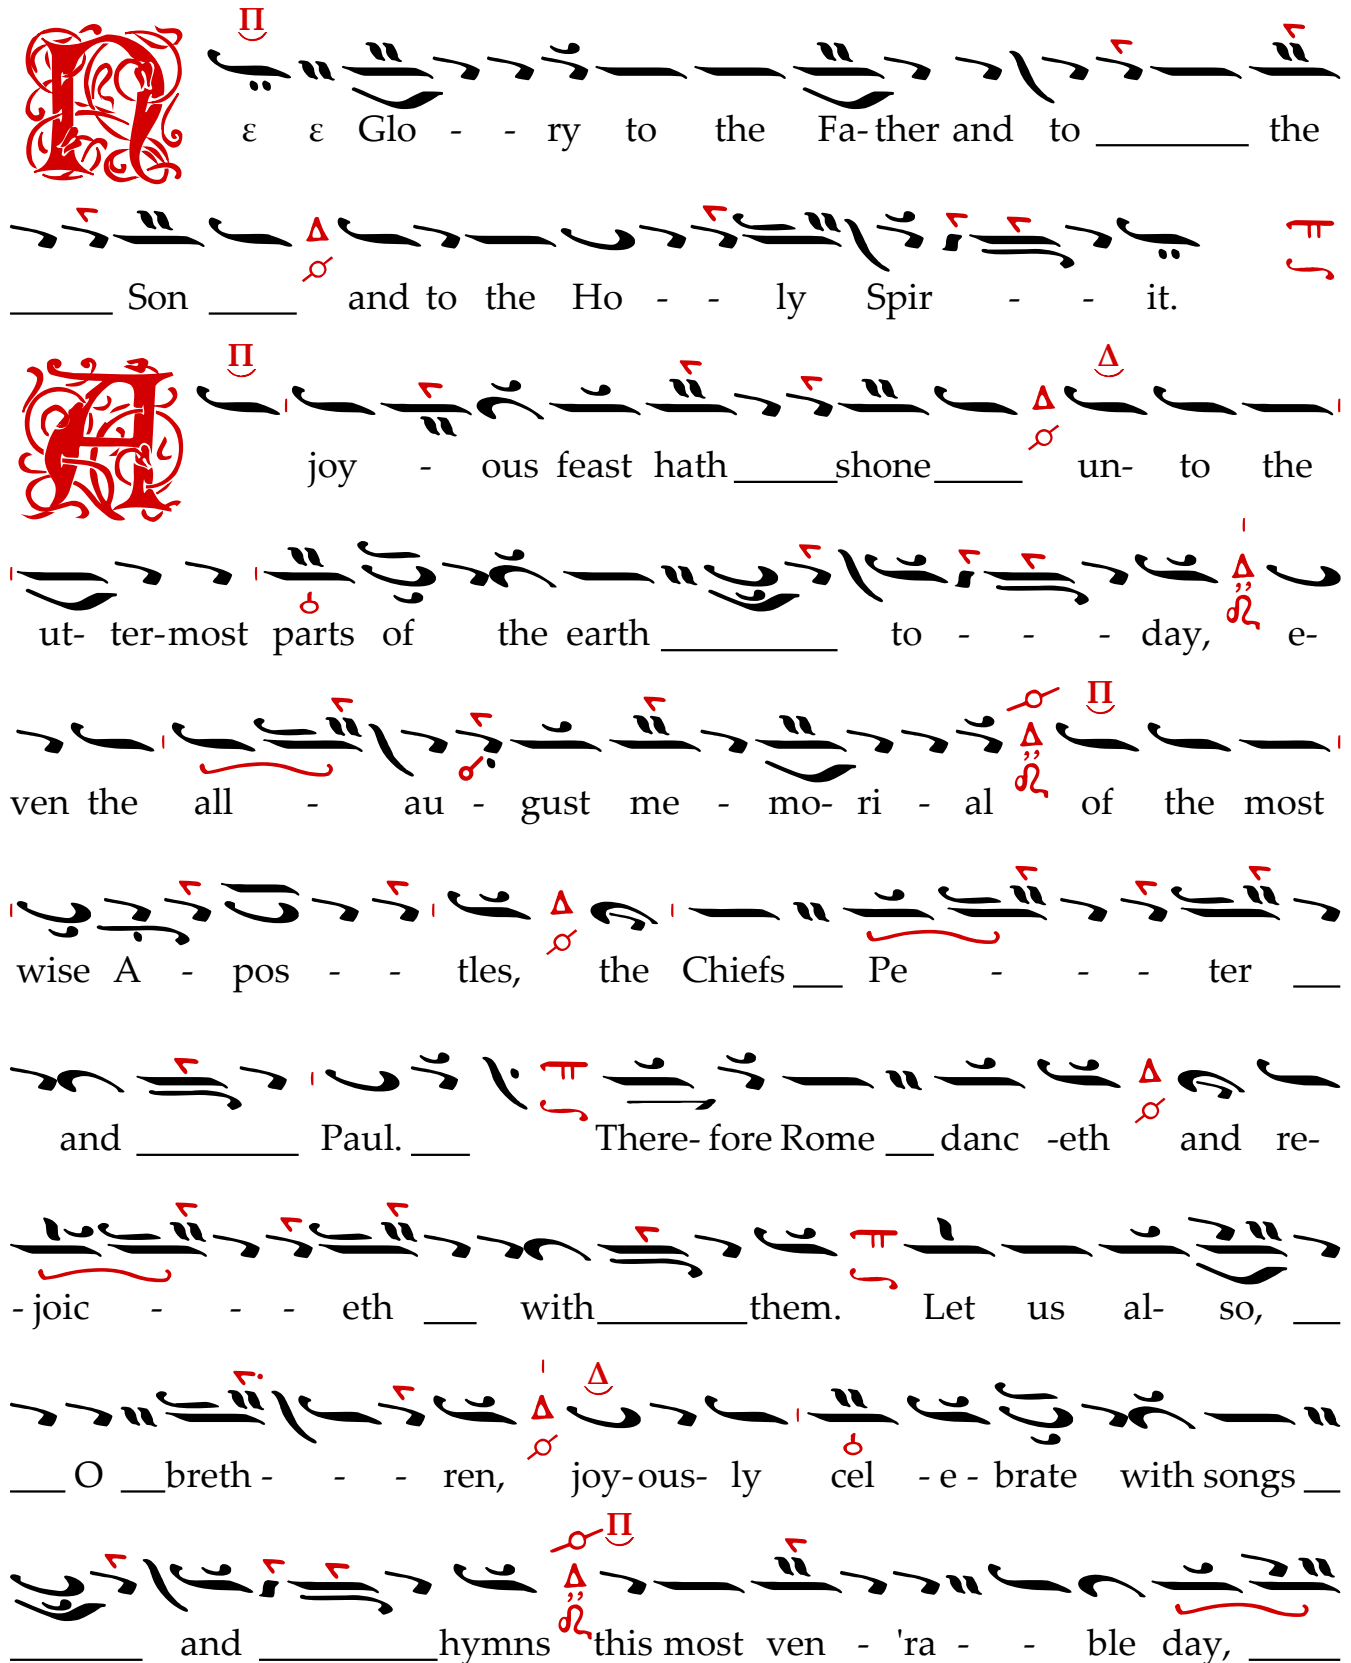 Π
Ν ε ε Glo - - ry to the Fa- ther and to ___ the
___ Son ___ Δ and to the Ho - - ly Spir - - it.
Π Δ
A joy - ous feast hath ___ shone ___ Δ un- to the
ut- ter-most parts of the earth ___ to - - - day, Δ e-
Π
ven the all - au - gust me - mo- ri - al Δ of the most
wise A - pos - - tles, Δ the Chiefs ___ Pe - - - ter ___
and ___ Paul. ___ There- fore Rome ___ danc -eth Δ and re-
- joic - - - eth ___ with ___ them. Let us al- so, ___
Δ
___ O ___ breth - - - ren, Δ joy-ous- ly cel - e - brate with songs ___
Π
___ and ___ hymns Δ this most ven - 'ra - - ble day, ___